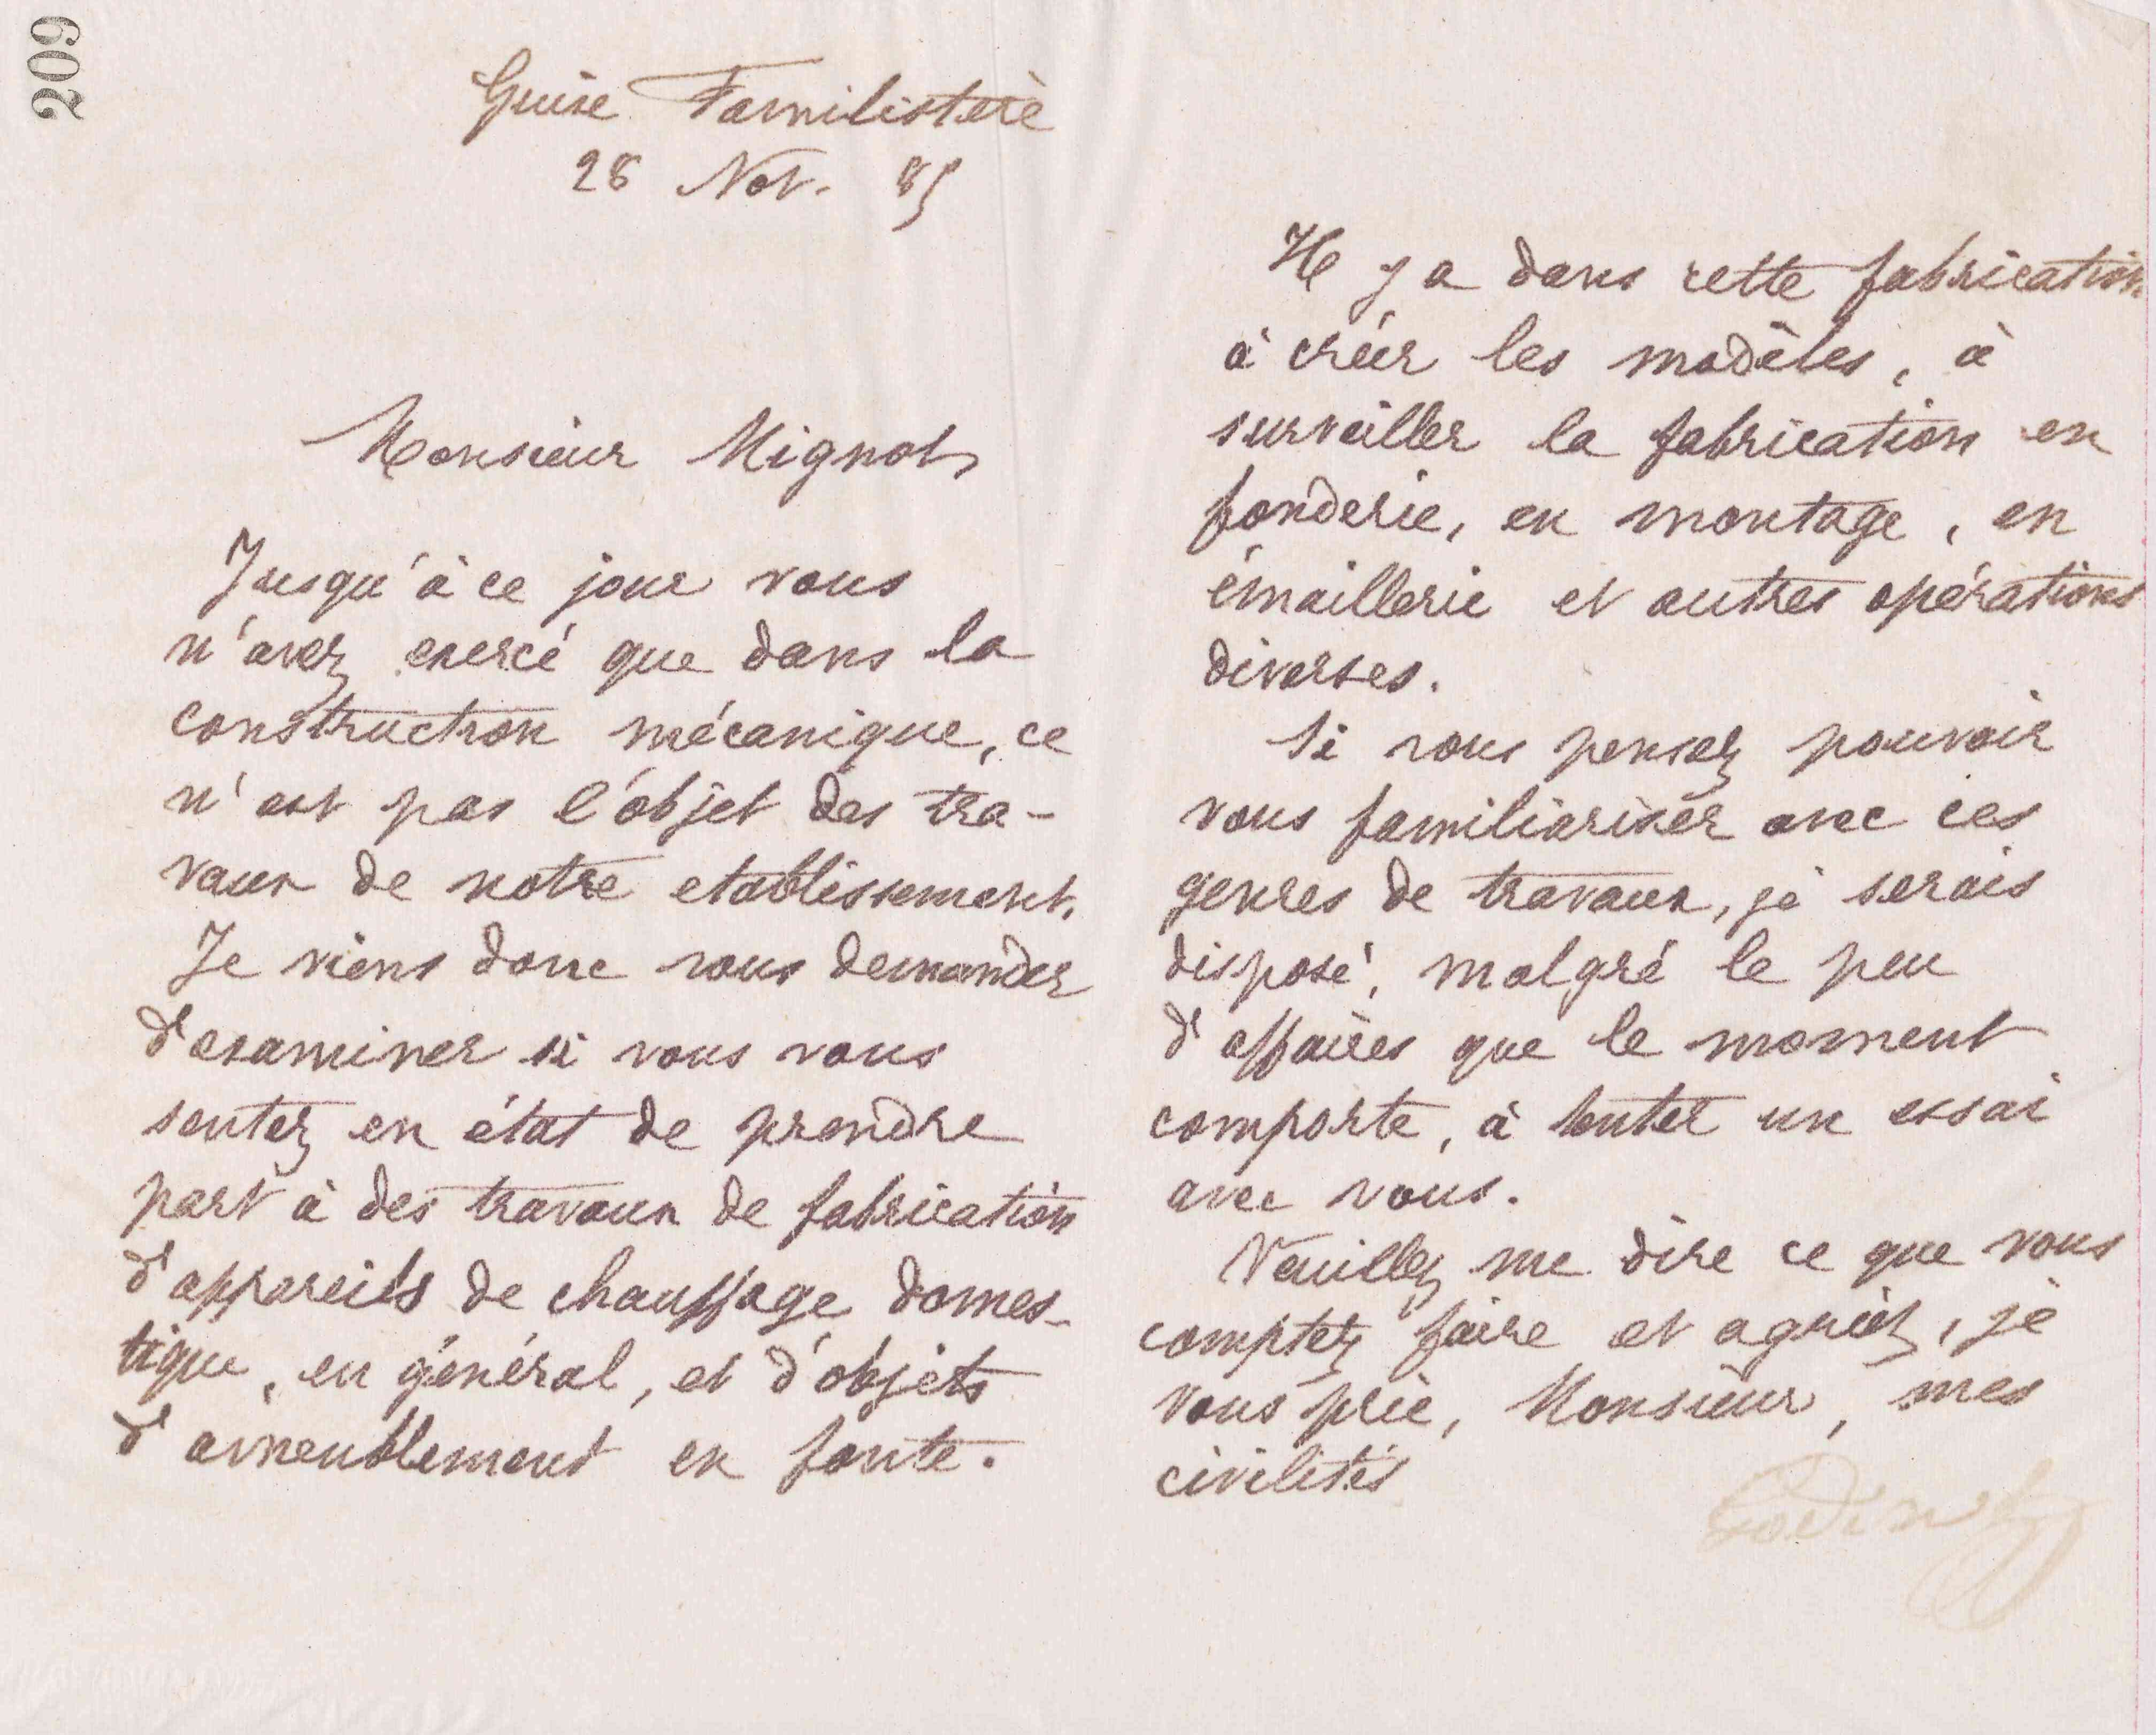 209
Guise Familistère
28 Nov. 85
Monsieur Mignot,
Jusqu'à ce jour vous
n'avez exercé que dans la
construction mécanique, ce
n'est pas l'objet des tra-
vaux de notre etablissement.
Je viens donc vous demander
d'examiner si vous vous
sentez en état de prendre
part à des travaux de fabrication
d'appareils de chauffage domes-
tique, en général, et d'objets
d'ameublement en fonte.
Il y a dans cette fabrication
à créer les modèles, à
surveiller la fabrication en
fonderie, en montage, en
émaillerie et autres opérations
diverses.
Si vous pensez pouvoir
vous familiariser avec ces
genres de travaux, je serais
disposé, malgré le peu
d'affaires que le moment
comporte, à tenter un essai
avec vous.
Veuillez me dire ce que vous
comptez faire et agréez, je
vous prie, Monsieur, mes
civilités
Godin